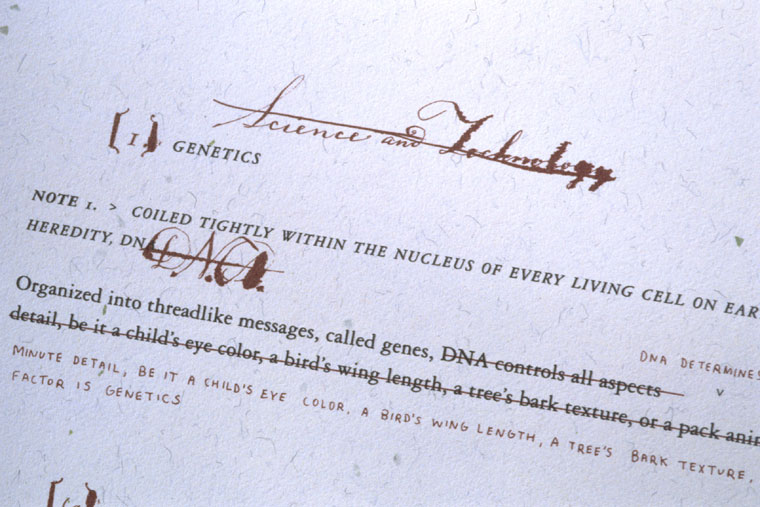 Science and Technology
[1.] GENETICS
NOTE 1. > COILED TIGHTLY WITHIN THE NUCLEUS OF EVERY LIVING CELL ON EAR
HEREDITY, DNA D.N.A.
Organized into threadlike messages, called genes, DNA controls all aspects
DNA DETERMINES
v
detail, be it a child's eye color, a bird's wing length, a tree's bark texture, or a pack ani
MINUTE DETAIL, BE IT A CHILD'S EYE COLOR, A BIRD'S WING LENGTH, A TREE'S BARK TEXTURE,
FACTOR IS GENETICS